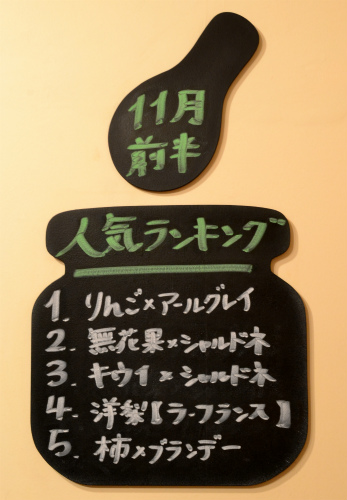 11月
前半
人気ランキング
1. りんご×アールグレイ
2. 無花果×シャルドネ
3. キウイ×シャルドネ
4. 洋梨【ラ・フランス】
5. 柿×ブランデー